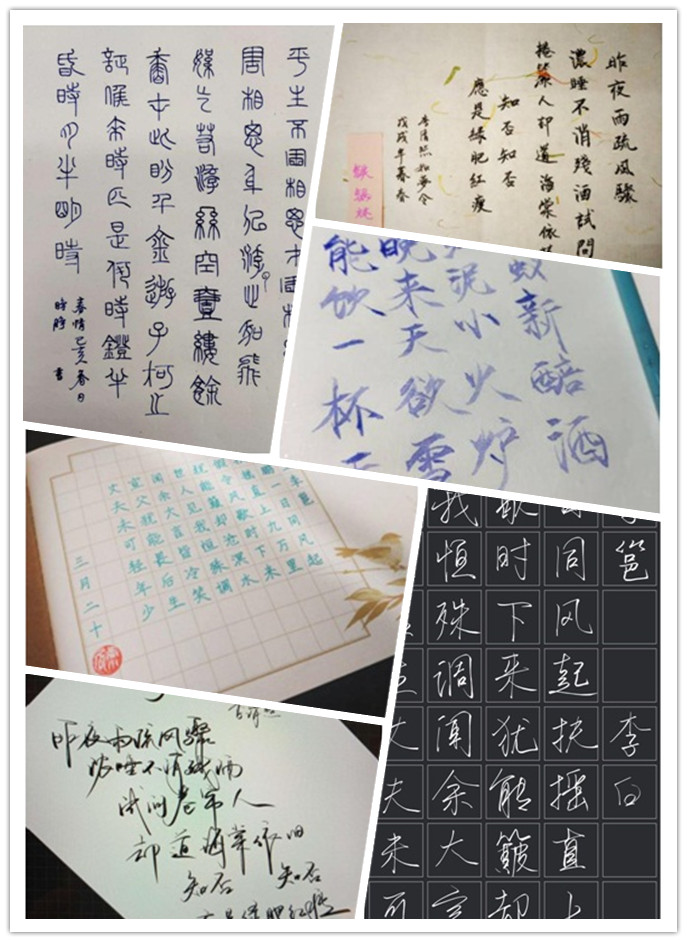 平生不會相思才會相
害相思身似浮雲心如飛
絮气若游絲空一縷餘
香在此盼千金遊子何之
証候來時正是何時燈半
昏時月半明時
春情己亥春日
書
昨夜雨疏风骤
濃睡不消殘酒試問
捲簾人却道海棠依
知否知否
應是綠肥紅瘦
李清照如夢令
戊戌年暮春
蚁新醅酒
泥小火炉
晚来天欲雪
能饮一杯
邕
一日同风起
直上九万里
令风歇时下来
能簸却沧溟水
世人见我恒殊调
闻余大言皆冷笑
宣父犹能畏后生
丈夫未可轻年少
三月二十
昨夜雨疏风骤
浓睡不消残酒
试问卷帘人
却道海棠依旧
知否 知否
应是绿肥红瘦
邕 李白
同风起扶摇直上
歇时下来犹能簸却
我恒殊调闻余大言
丈夫未可